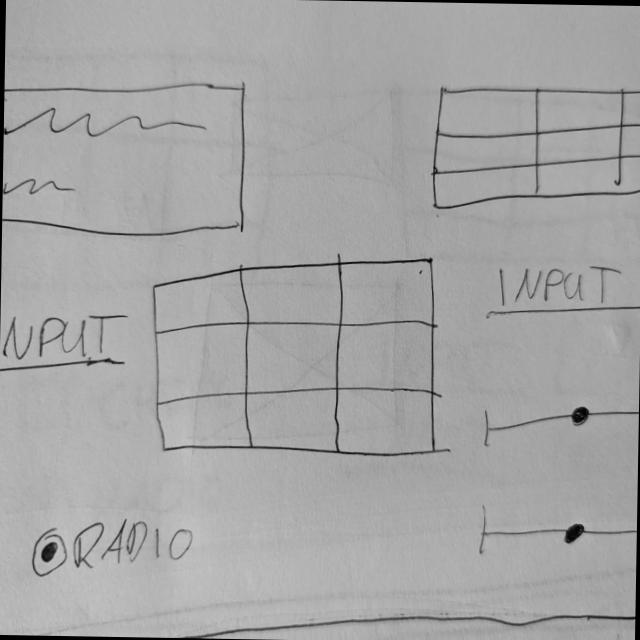 INPUT
NPUT
RADIO